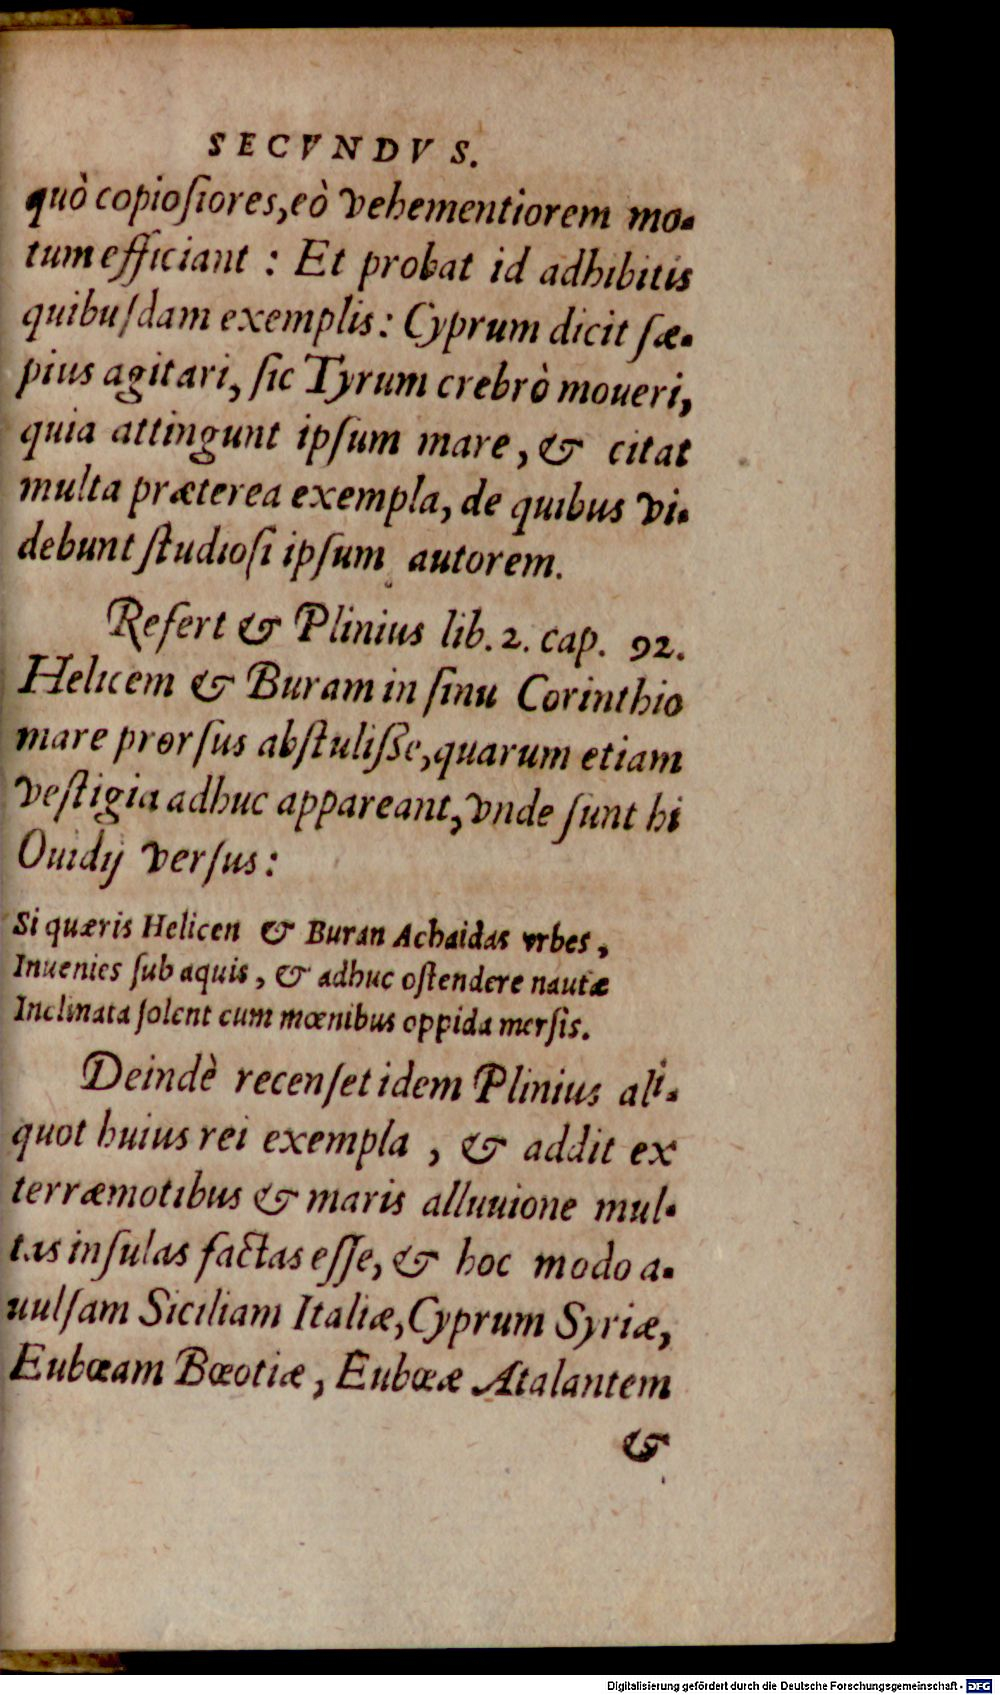 SECVNDVS.
quò copioſiores, eò vehementiorem mo-
tum efficiant : Et probat id adhibitis
quibuſdam exemplis: Cyprum dicit ſæ-
pius agitari, ſic Tyrum crebrò moueri,
quia attingunt ipſum mare, & citat
multa præterea exempla, de quibus vi-
debunt ſtudioſi ipſum autorem.
Refert & Plinius lib. 2. cap. 92.
Helicem & Buram in ſinu Corinthio
mare prorſus abſtuliſſe, quarum etiam
veſtigia adhuc appareant, vnde ſunt hi
Ouidij verſus:
Si quæris Helicen & Buran Achaidas vrbes,
Inuenies ſub aquis, & adhuc oſtendere nautæ
Inclinata ſolent cum mœnibus oppida merſis.
Deindè recenſet idem Plinius ali-
quot huius rei exempla, & addit ex
terræmotibus & maris alluuione mul-
tas inſulas factas eſſe, & hoc modo a-
uulſam Siciliam Italiæ, Cyprum Syriæ,
Eubœam Bœotiæ, Eubœæ Atalantem
&
Digitalisierung gefördert durch die Deutsche Forschungsgemeinschaft - DFG